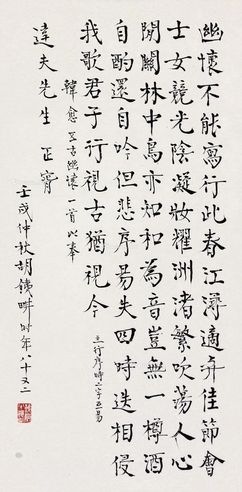 幽懷不能寫行此春江潯適與佳節會
士女競光陰凝妝耀洲渚繁吹蕩人心
間關林中鳥亦知和為音豈無一樽酒
自酌還自吟但悲序易失四時迭相侵
我歌君子行視古猶視今
行序時二字互易
韓愈五古幽懷一首以奉
達夫先生 正
壬戌仲秋胡時年八十又二